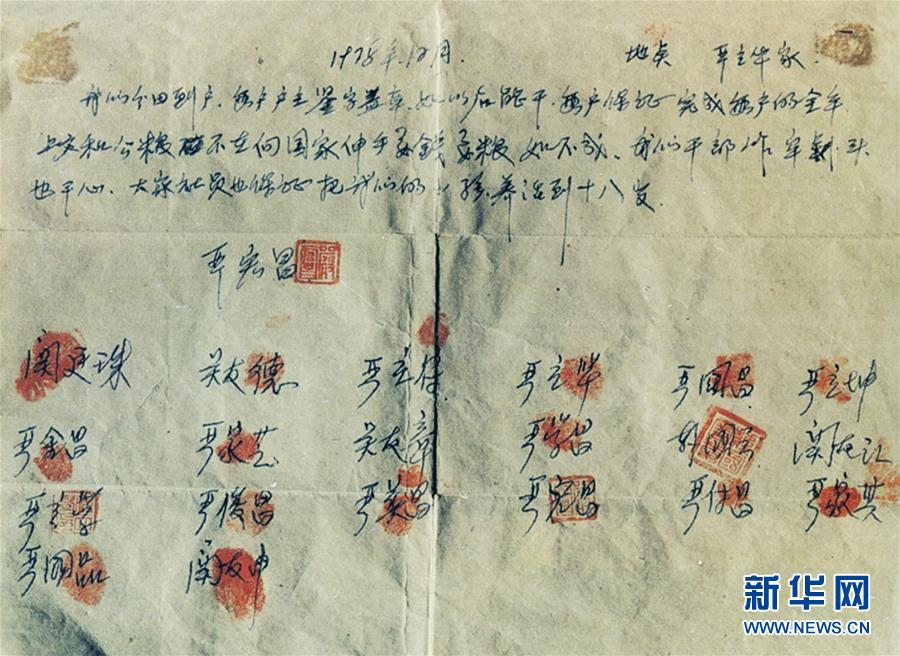 1978年12月. 地点 严立华家.
我们分田到户,每户户主签字盖章,如以后能干,每户保证完成每户的全年
上交和公粮 不在向国家伸手要钱要粮 如不成,我们干部作牢刹头
也干心,大家社员也保证把我们的小孩养活到十八岁.
严宏昌
关廷珠 关友德 严立符 严立华 严国昌 严立坤
严金昌 严家芝 关友章 严学昌 韩国云 关友江
严立学 严俊昌 严美昌 严宏昌 严付昌 严家其
严国品 关友申
新华网
WWW.NEWS.CN